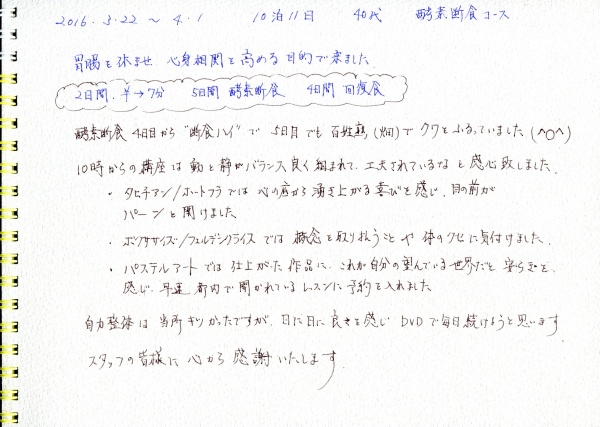 2016.3.22 ～ 4.1 10泊11日 40代 酵素断食コース
胃腸を休ませ 心身相関を高める目的で来ました
2日間 半→7分 5日間 酵素断食 4日間 回復食
酵素断食 4日目から"断食ハイ"で 5日目でも百姓 (畑)でクワをふるっていました (^O^)
10時からの講座は動と静がバランス良く組まれて、工夫されているなと感心致しました
・タヒチアン/ホートフラでは 心の底から湧き上がる喜びを感じ、目の前が
パーンと開けました
・ボクササイズ/フェルデンクライスでは 概念を取り払うことや体のクセに気付けました、
・パステルアートでは 仕上がった作品に、これが自分の望んでいる世界だと安らぎを
感じ、早速都内で開かれているレッスンに予約を入れました
自力整体は当所キツかったですが、日に日に良さを感じ DVDで毎日続けようと思います
スタッフの皆様に心から感謝いたします